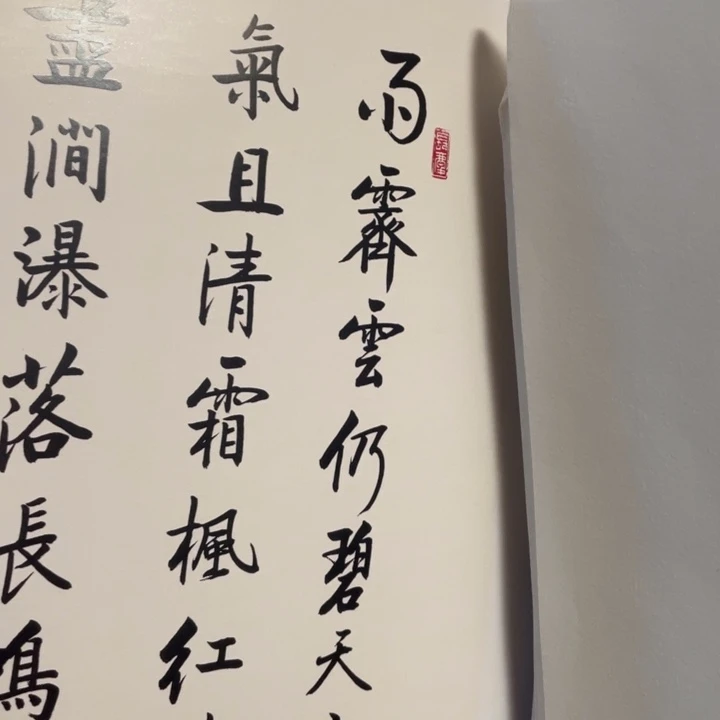 雨霽雲仍碧天
氣且清霜楓红
盡澗瀑落長鳴